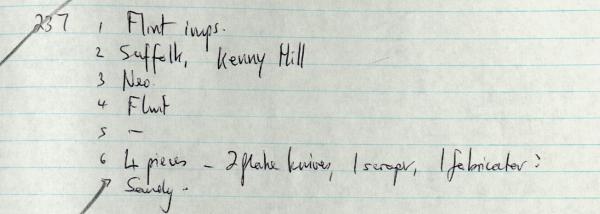 237 1 Flint imps.
2 Suffolk, Kenny Hill
3 Neo.
4 Flint
5 –
6 4 pieces – 2 flake knives, 1 scraper, 1 fabricator?
Sandy.